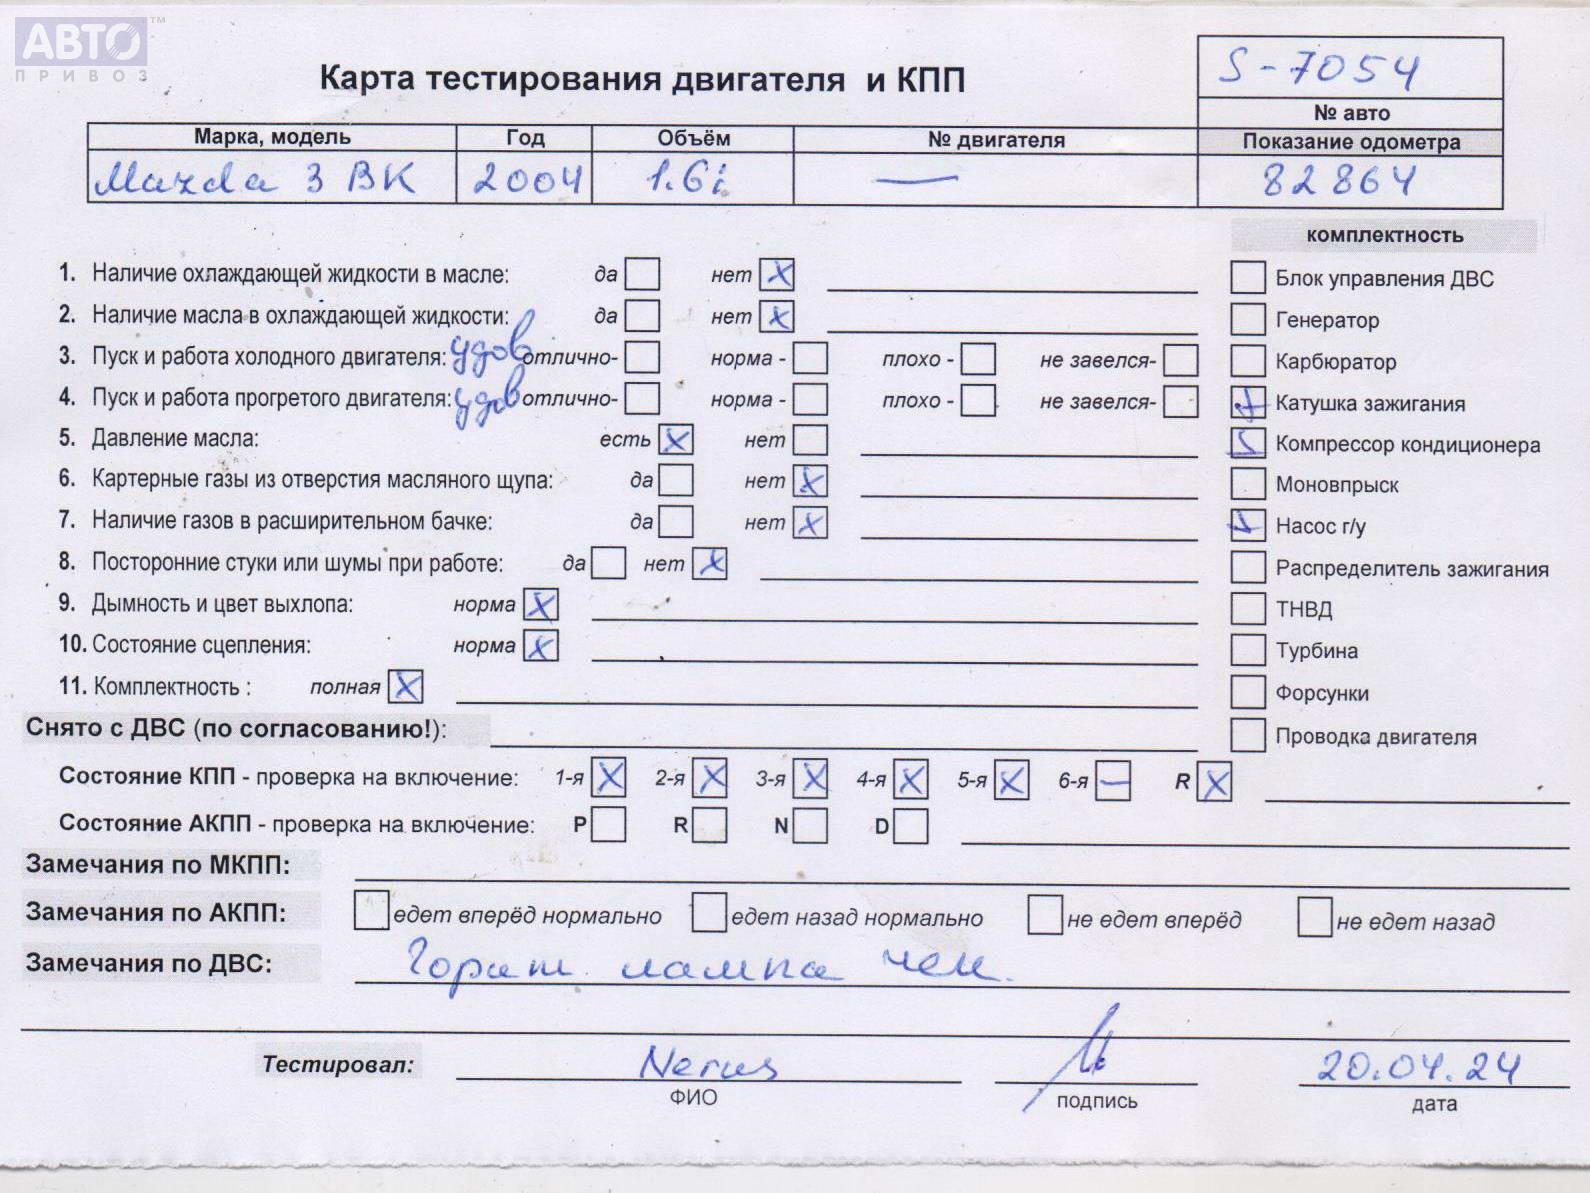 АВТО ™
ПРИВОЗ
Карта тестирования двигателя и КПП
S-7054
№ авто
Марка, модель Год Объём № двигателя Показание одометра
Mazda 3 BK 2004 1.6i — 82864
комплектность
1. Наличие охлаждающей жидкости в масле: да нет X
Блок управления ДВС
2. Наличие масла в охлаждающей жидкости: да нет X
Генератор
3. Пуск и работа холодного двигателя: удов отлично- норма - плохо - не завелся-
Карбюратор
4. Пуск и работа прогретого двигателя: удов отлично- норма - плохо - не завелся-
Катушка зажигания
5. Давление масла: есть X нет
Компрессор кондиционера
6. Картерные газы из отверстия масляного щупа: да нет X
Моновпрыск
7. Наличие газов в расширительном бачке: да нет X
Насос г/у
8. Посторонние стуки или шумы при работе: да нет X
Распределитель зажигания
9. Дымность и цвет выхлопа: норма X
ТНВД
10. Состояние сцепления: норма X
Турбина
11. Комплектность : полная X
Форсунки
Снято с ДВС (по согласованию!):
Проводка двигателя
Состояние КПП - проверка на включение: 1-я X 2-я X 3-я X 4-я X 5-я X 6-я — R X
Состояние АКПП - проверка на включение: P R N D
Замечания по МКПП:
Замечания по АКПП: едет вперёд нормально едет назад нормально не едет вперёд не едет назад
Замечания по ДВС: Горит лампа чек.
Тестировал: 20.04.24
ФИО подпись дата